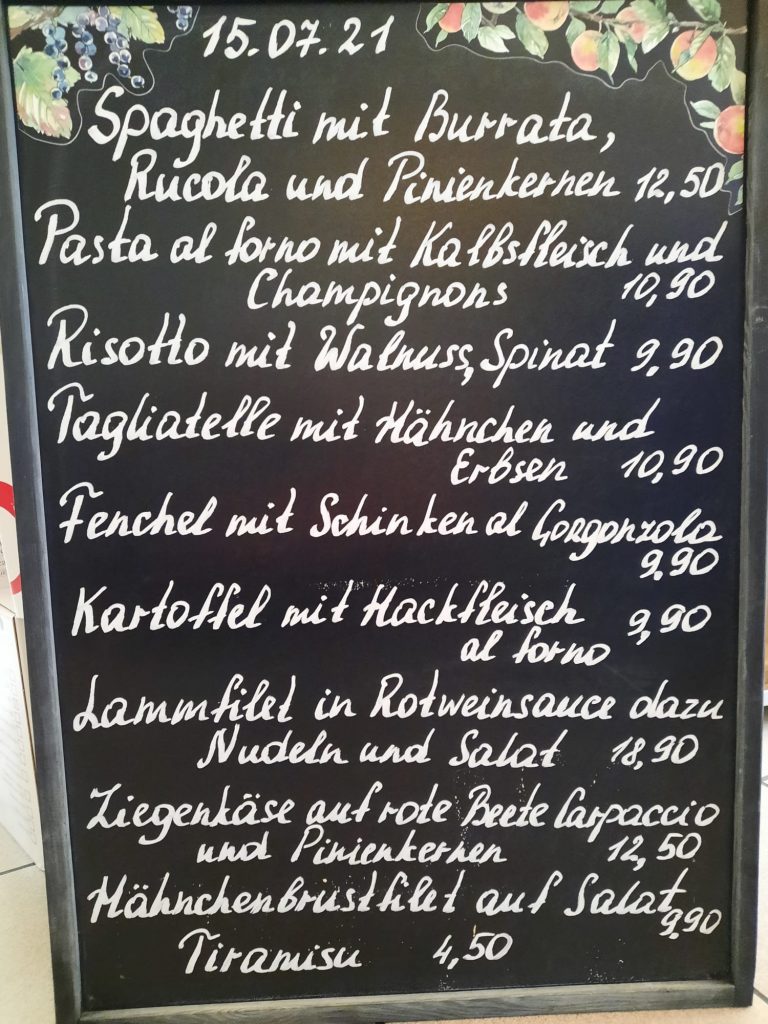 15.07.21
Spaghetti mit Burrata,
Rucola und Pinienkernen 12,50
Pasta al forno mit Kalbsfleisch und
Champignons 10,90
Risotto mit Walnuss, Spinat 9,90
Tagliatelle mit Hähnchen und
Erbsen 10,90
Fenchel mit Schinken al Gorgonzola
9,90
Kartoffel mit Hackfleisch 9,90
al forno
Lammfilet in Rotweinsauce dazu
Nudeln und Salat 18,90
Ziegenkäse auf rote Beete Carpaccio
und Pinienkernen 12,50
Hähnchenbrustfilet auf Salat
9,90
Tiramisu 4,50